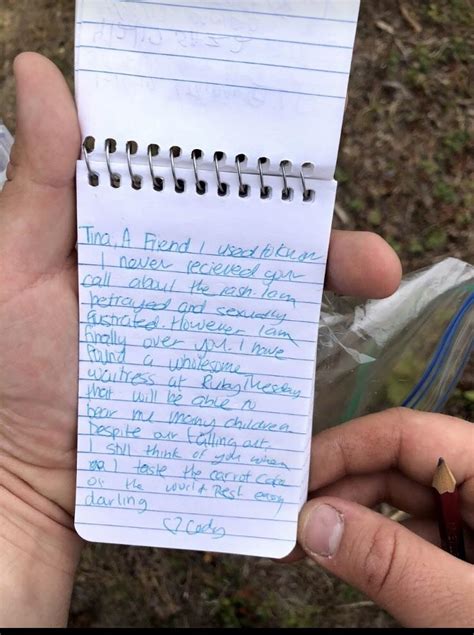 Tina, A Friend I used to know
I never recieved your
call about the rash. I am
betrayed and sexually
frustrated. However I am
finally over you. I have
found a wholesome
waitress at Ruby Tuesday
that will be able to
bear me many children
Despite our falling out,
I still think of you when
I taste the carrot cake
of the world Rest easy
darling
♡ Cody